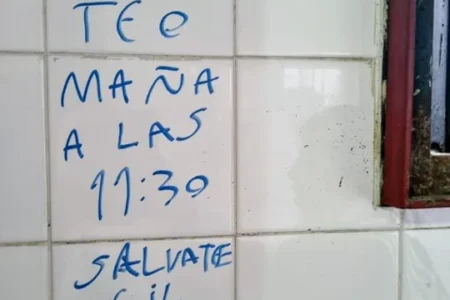 TE
MAÑA
A LAS
11:30
SALVATE